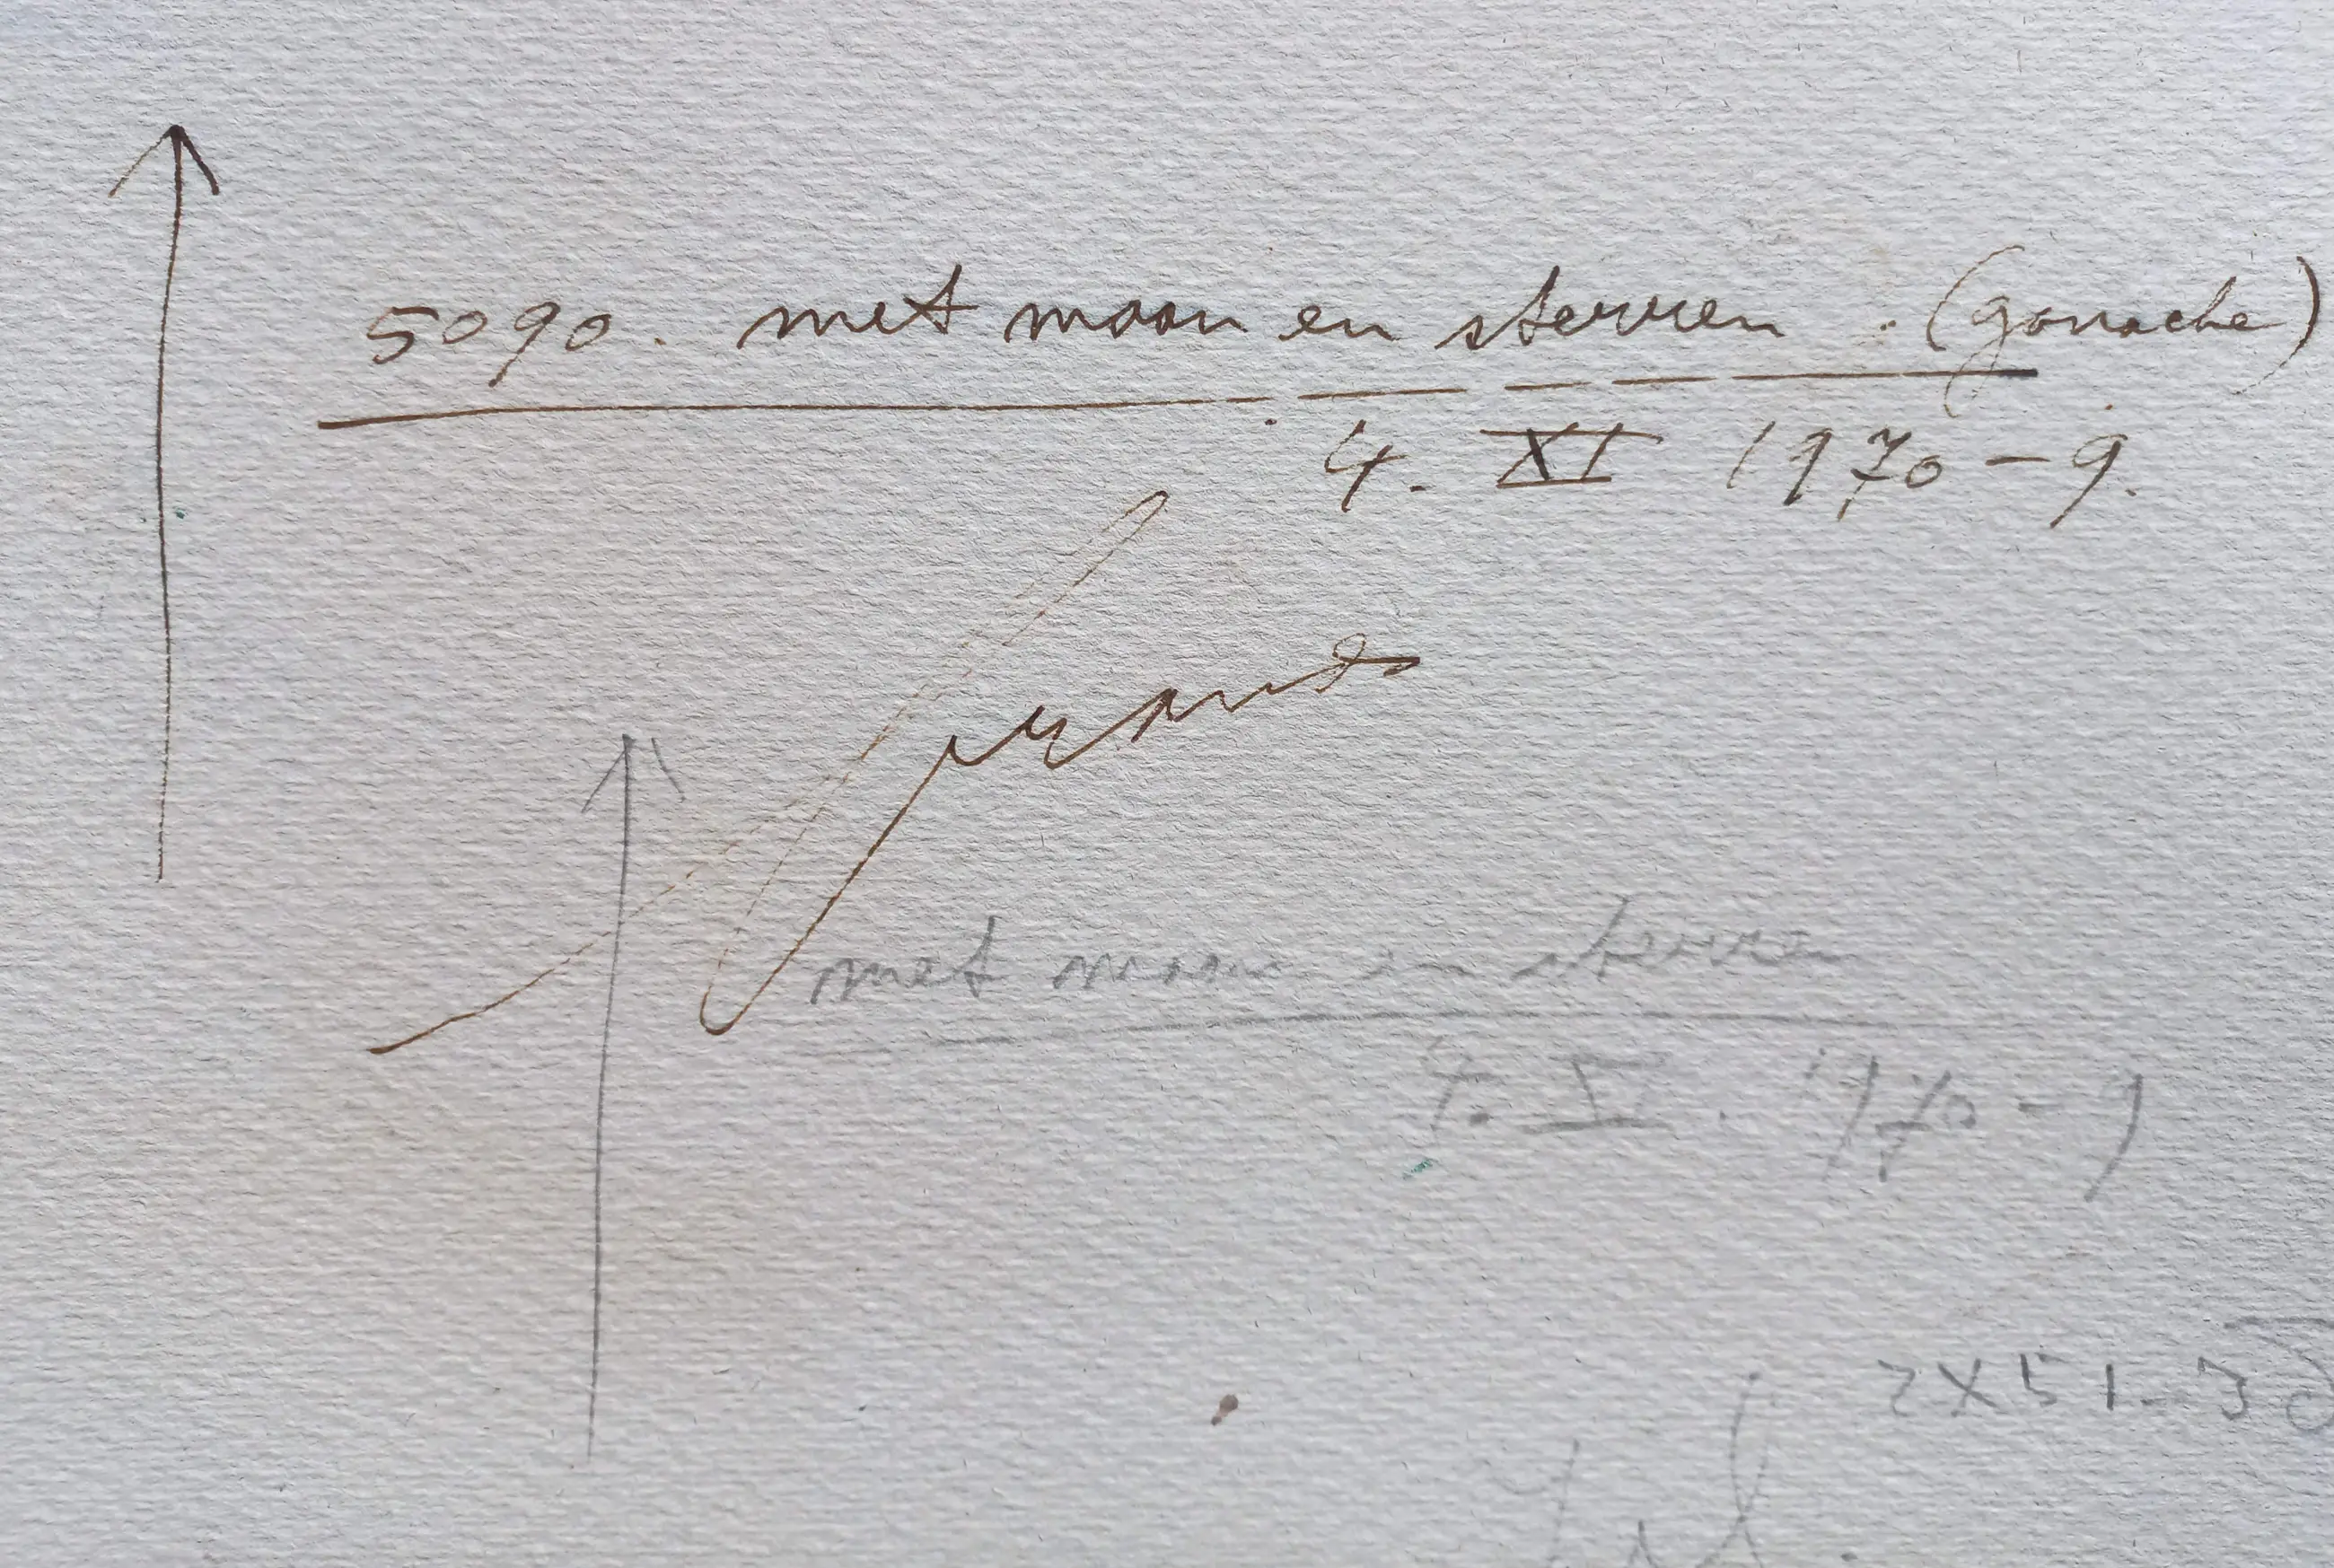 5090. met maan en sterren. (gouache)
4. XI 1970-9.
met maan en sterren
4. XI. 1970-9